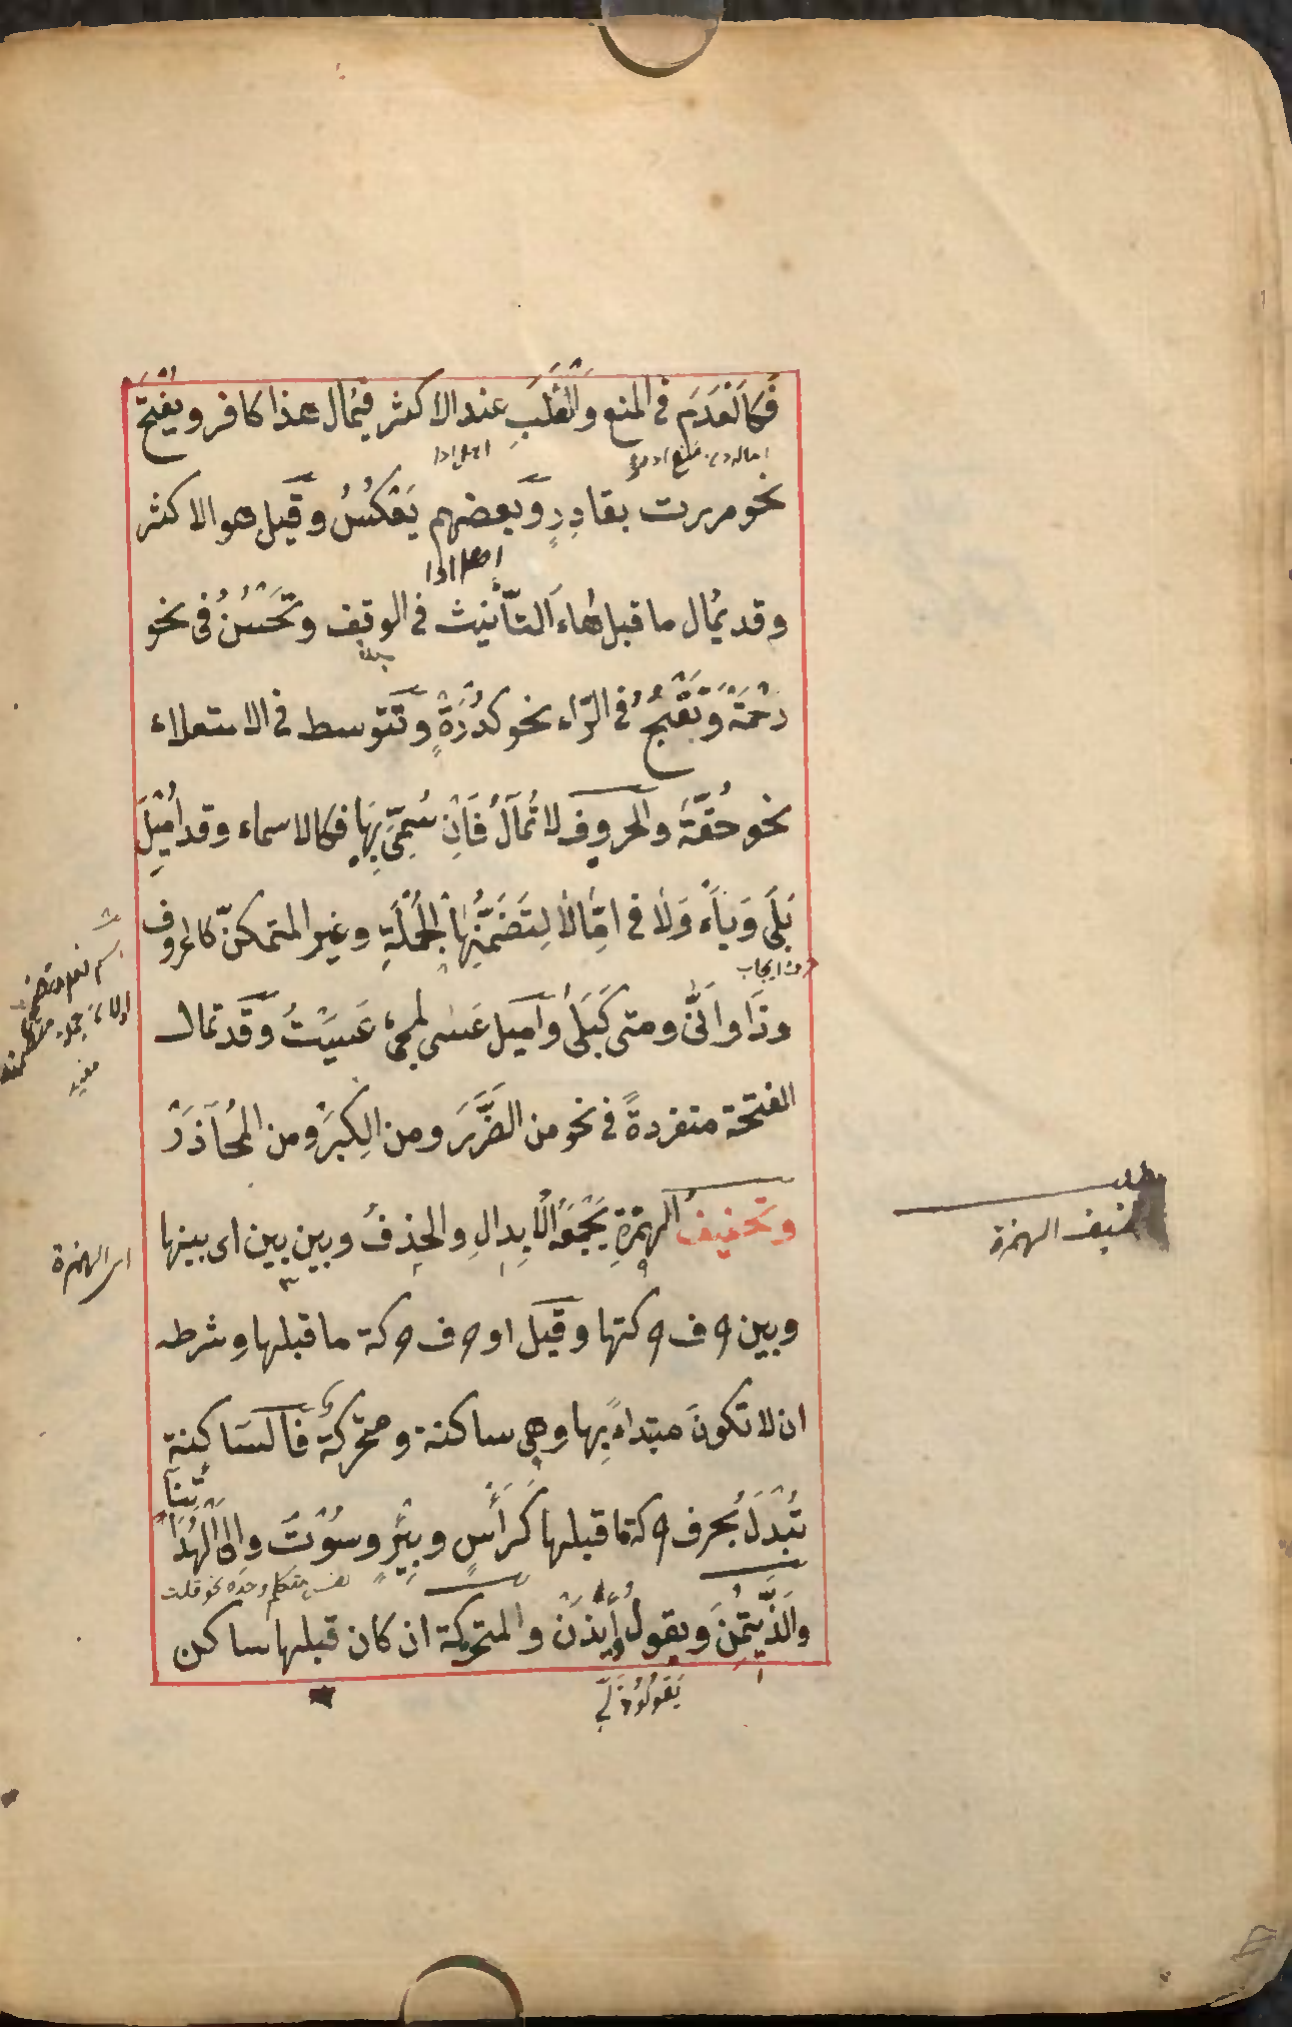 فَكَالْعَدَمِ في المنع وَالْغَلَبِ عند الاكثر فيُمال هذا كافر ويُفْتَحُ
نحو مررت بقادِرٍ وبعضهم يَعْكُسُ وقيل هو الاكثر
وقد يُمال ما قبل هاء التأنيث في الوقف وتَحْسُنُ في نحو
رَحْمَةٌ وَتَقْبُحُ في الرّاء نحو كُدْرَةٍ وتتوسط في الاستعلاء
نحو حُقَّةٌ والحروف لا تُمَالُ فَاِنْ سُمِّيَ بِهَا فكالاسماء وقد اُمِيلَ
بَلَى وَيَاءٌ وَلا في اِمَّالا لِتَضَمُّنِهَا الْجُمْلَةِ وغير المتمكنّ كالحروف
حرف ايجاب
وذَا وأَنَّى ومتى كَبَلَى وَاميل عَسَى لمجئ عَسَيْتُ وقد تمال
الفتحة منفردةً في نحو من الضَّرَرِ ومن الكِبَرِ ومن المُحَاذَرْ
وتخفيفُ الهمزةِ يَجْمَعُهُ الْاِبدالِ والحذفُ وبين بين اى بينها
تخفيف الهمزة
اى الهمزة
وبين حرف حركتها وقيل او حرف حركة ما قبلها وشرطه
ان لا تكونَ مبتداءً بها وهي ساكنة ومتحركةٌ فالسّاكنة
تُبْدَلُ بحرف حركة ما قبلها كَرَأْسٍ وبِيْرٍ وسُوْتَ والى الْهُدَا
تِنَا
نفس متكلم وحده نحو قلت
والَّذِيتُمِنَ ويقولُ ايْذَنْ والمتحركة ان كان قبلها ساكن
يَقُولُوذَن لِّي